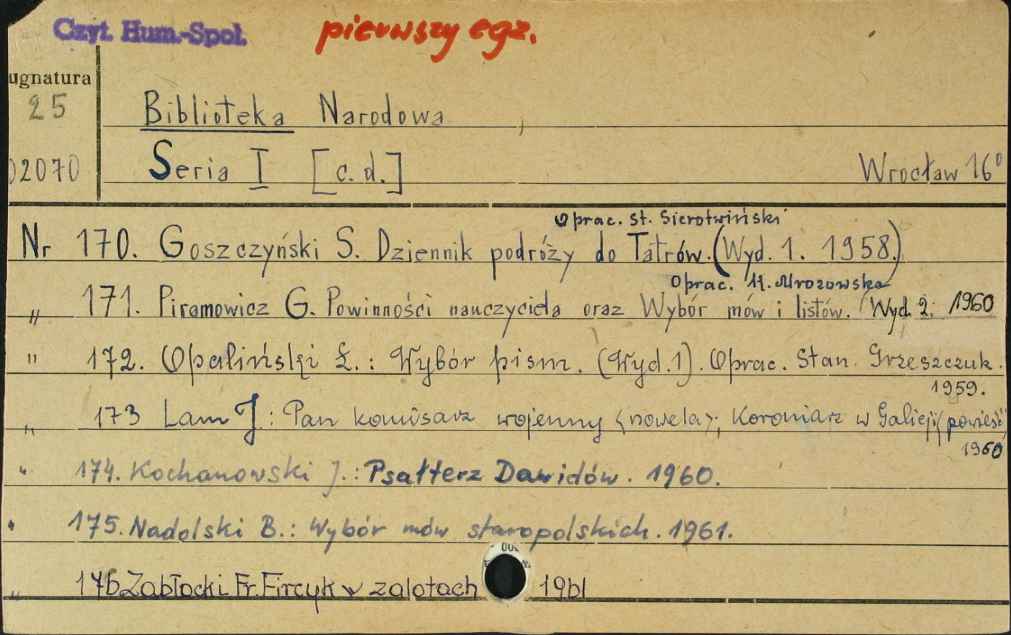 Czyt. Hum.-Społ. pierwszy egz.
ugnatura
25 Biblioteka Narodowa
02070 Seria I [c. d.] Wrocław 16°
Oprac. St. Sierotwiński
Nr 170. Goszczyński S. Dziennik podróży do Tatrów. (Wyd. 1. 1958.)
Oprac. K. Mrozowska
„ 171. Piramowicz G. Powinności nauczyciela oraz Wybór mów i listów. (Wyd. 2. 1960
„ 172. Opaliński Ł.: Wybór pism. (Wyd. 1). Oprac. Stan. Grzeszczuk.
1959.
„ 173 Lam J: Pan komisarz wojenny (nowela); Koroniarz w Galicji (powieść)
1960
„ 174. Kochanowski J.: Psałterz Dawidów. 1960.
„ 175. Nadolski B.: Wybór mów staropolskich. 1961.
„ 176 Zabłocki Fr. Fircyk w zalotach 1961